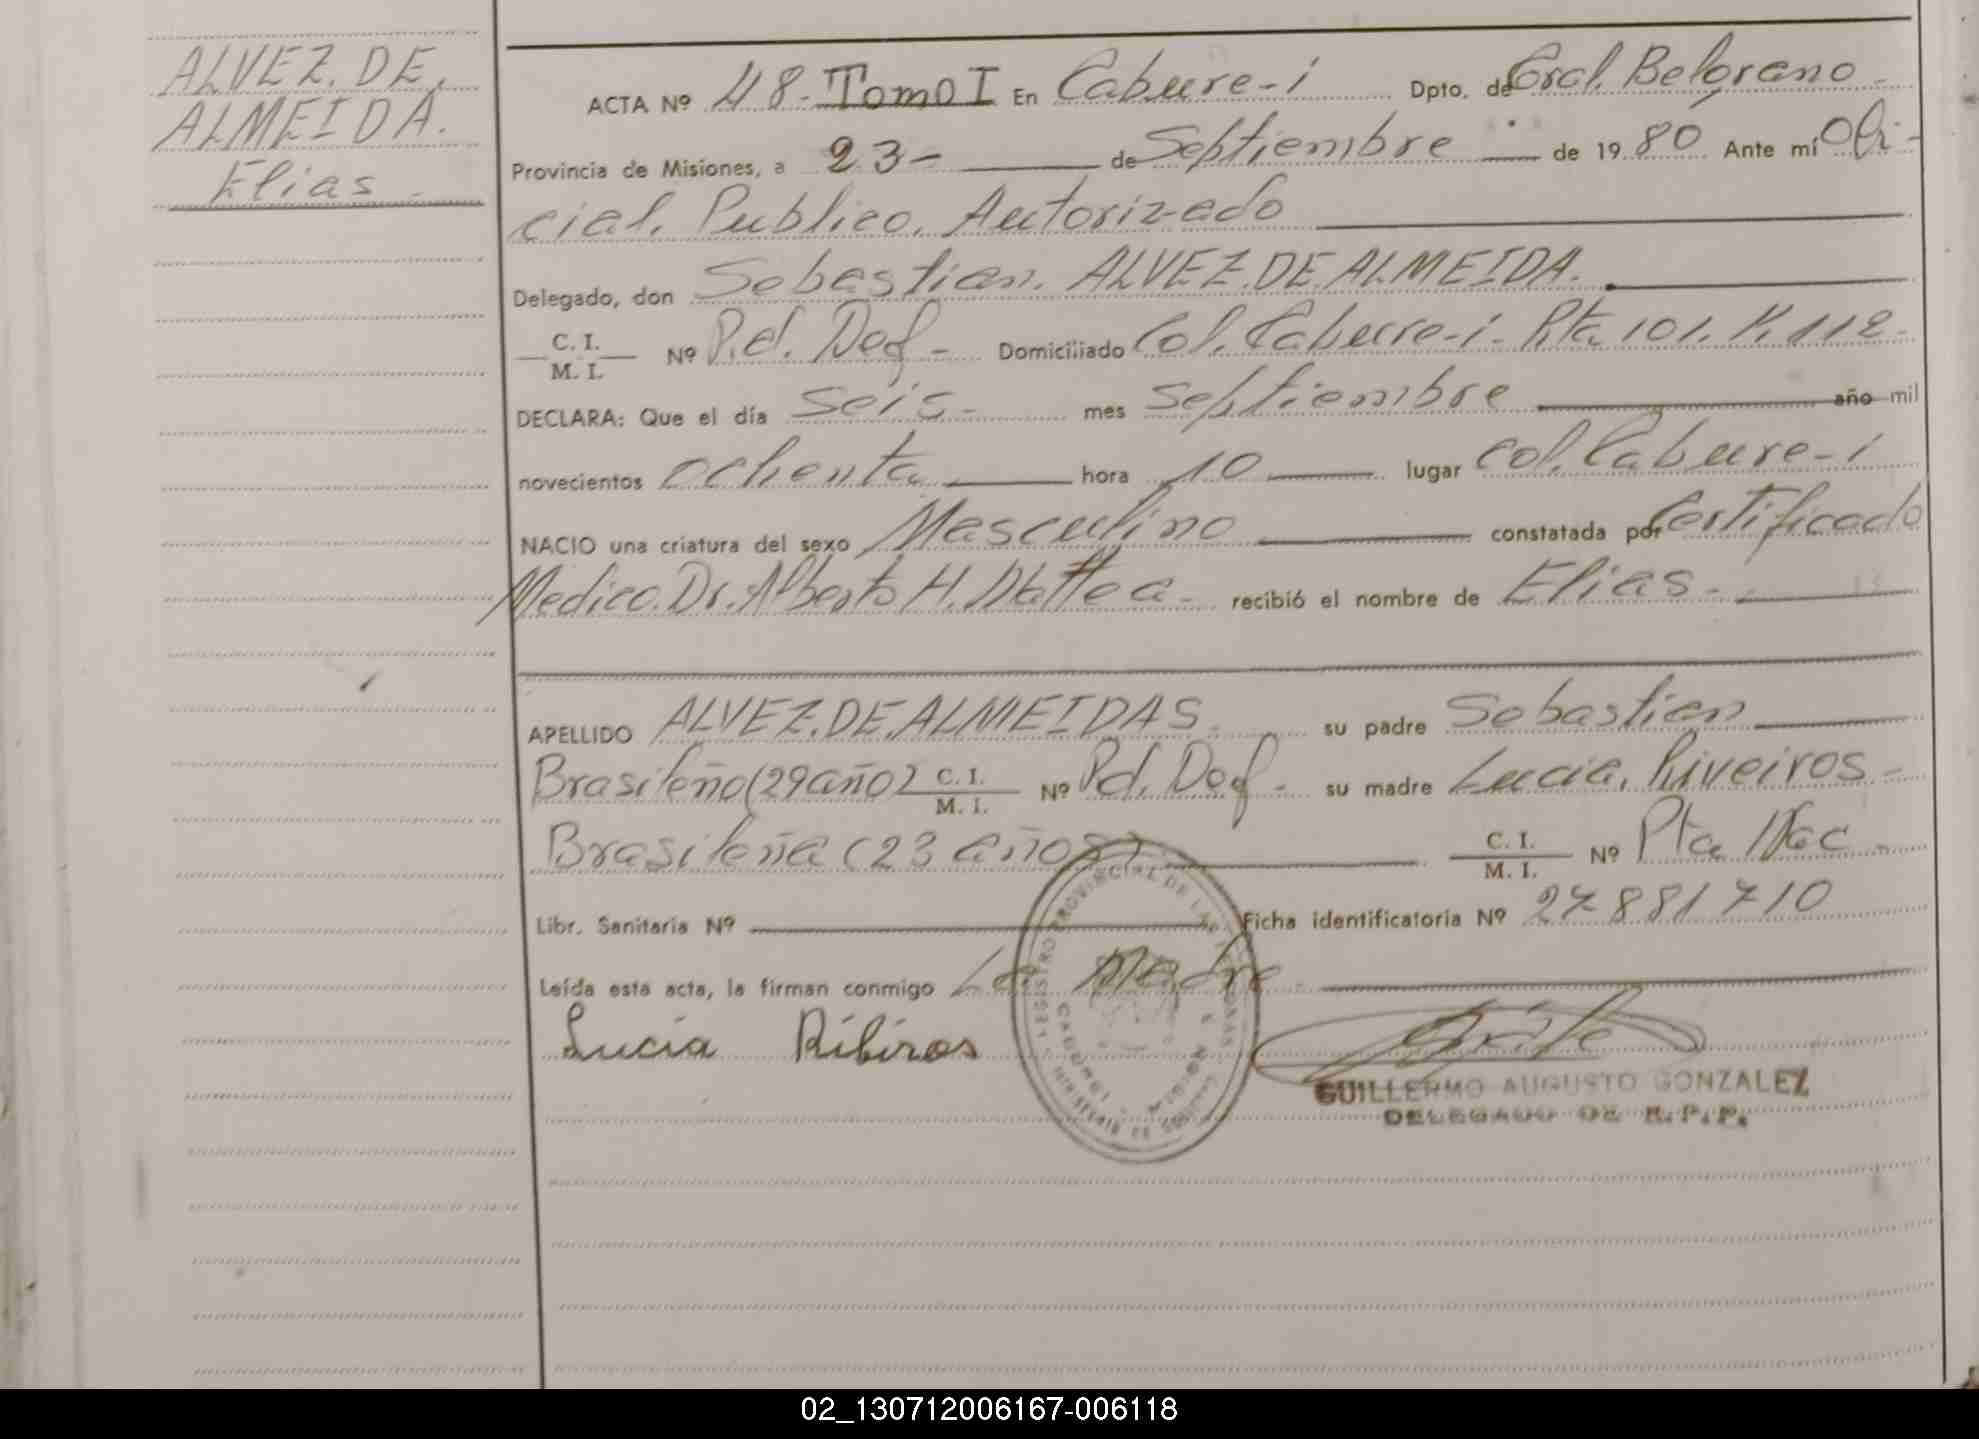 ALVEZ. DE.
ALMEIDA.
Elias -
ACTA Nº 48 - Tomo I En Cabure-i Dpto. de Gral. Belgrano -
Provincia de Misiones, a 23 - de Septiembre de 19 80 Ante mí Ofi-
cial. Publico. Autorizado
Delegado, don Sebastian. ALVEZ. DE. ALMEIDA.
C. I.
M. I. Nº P.d. Def - Domiciliado Col. Cabure-i - Rta 101. K. 112 -
DECLARA: Que el día Seis - mes Septiembre año mil
novecientos ochenta hora 10 lugar Col. Cabure-i
NACIO una criatura del sexo Masculino constatada por Certificado
Medico. Dr. Alberto H. recibió el nombre de Elias -
APELLIDO ALVEZ. DE. ALMEIDAS - su padre Sebastian
Brasileño (29 año) C. I.
M. I. Nº Pd. Def - su madre Lucia. Riveiros -
Brasileña (23 años) C. I.
M. I. Nº Pta
Libr. Sanitaria Nº Ficha identificatoria Nº 27881710
Leída esta acta, la firman conmigo La Madre -
Lucia Ribiros
GUILLERMO AUGUSTO GONZALEZ
DELEGADO DE R.P.P.
02_130712006167-006118